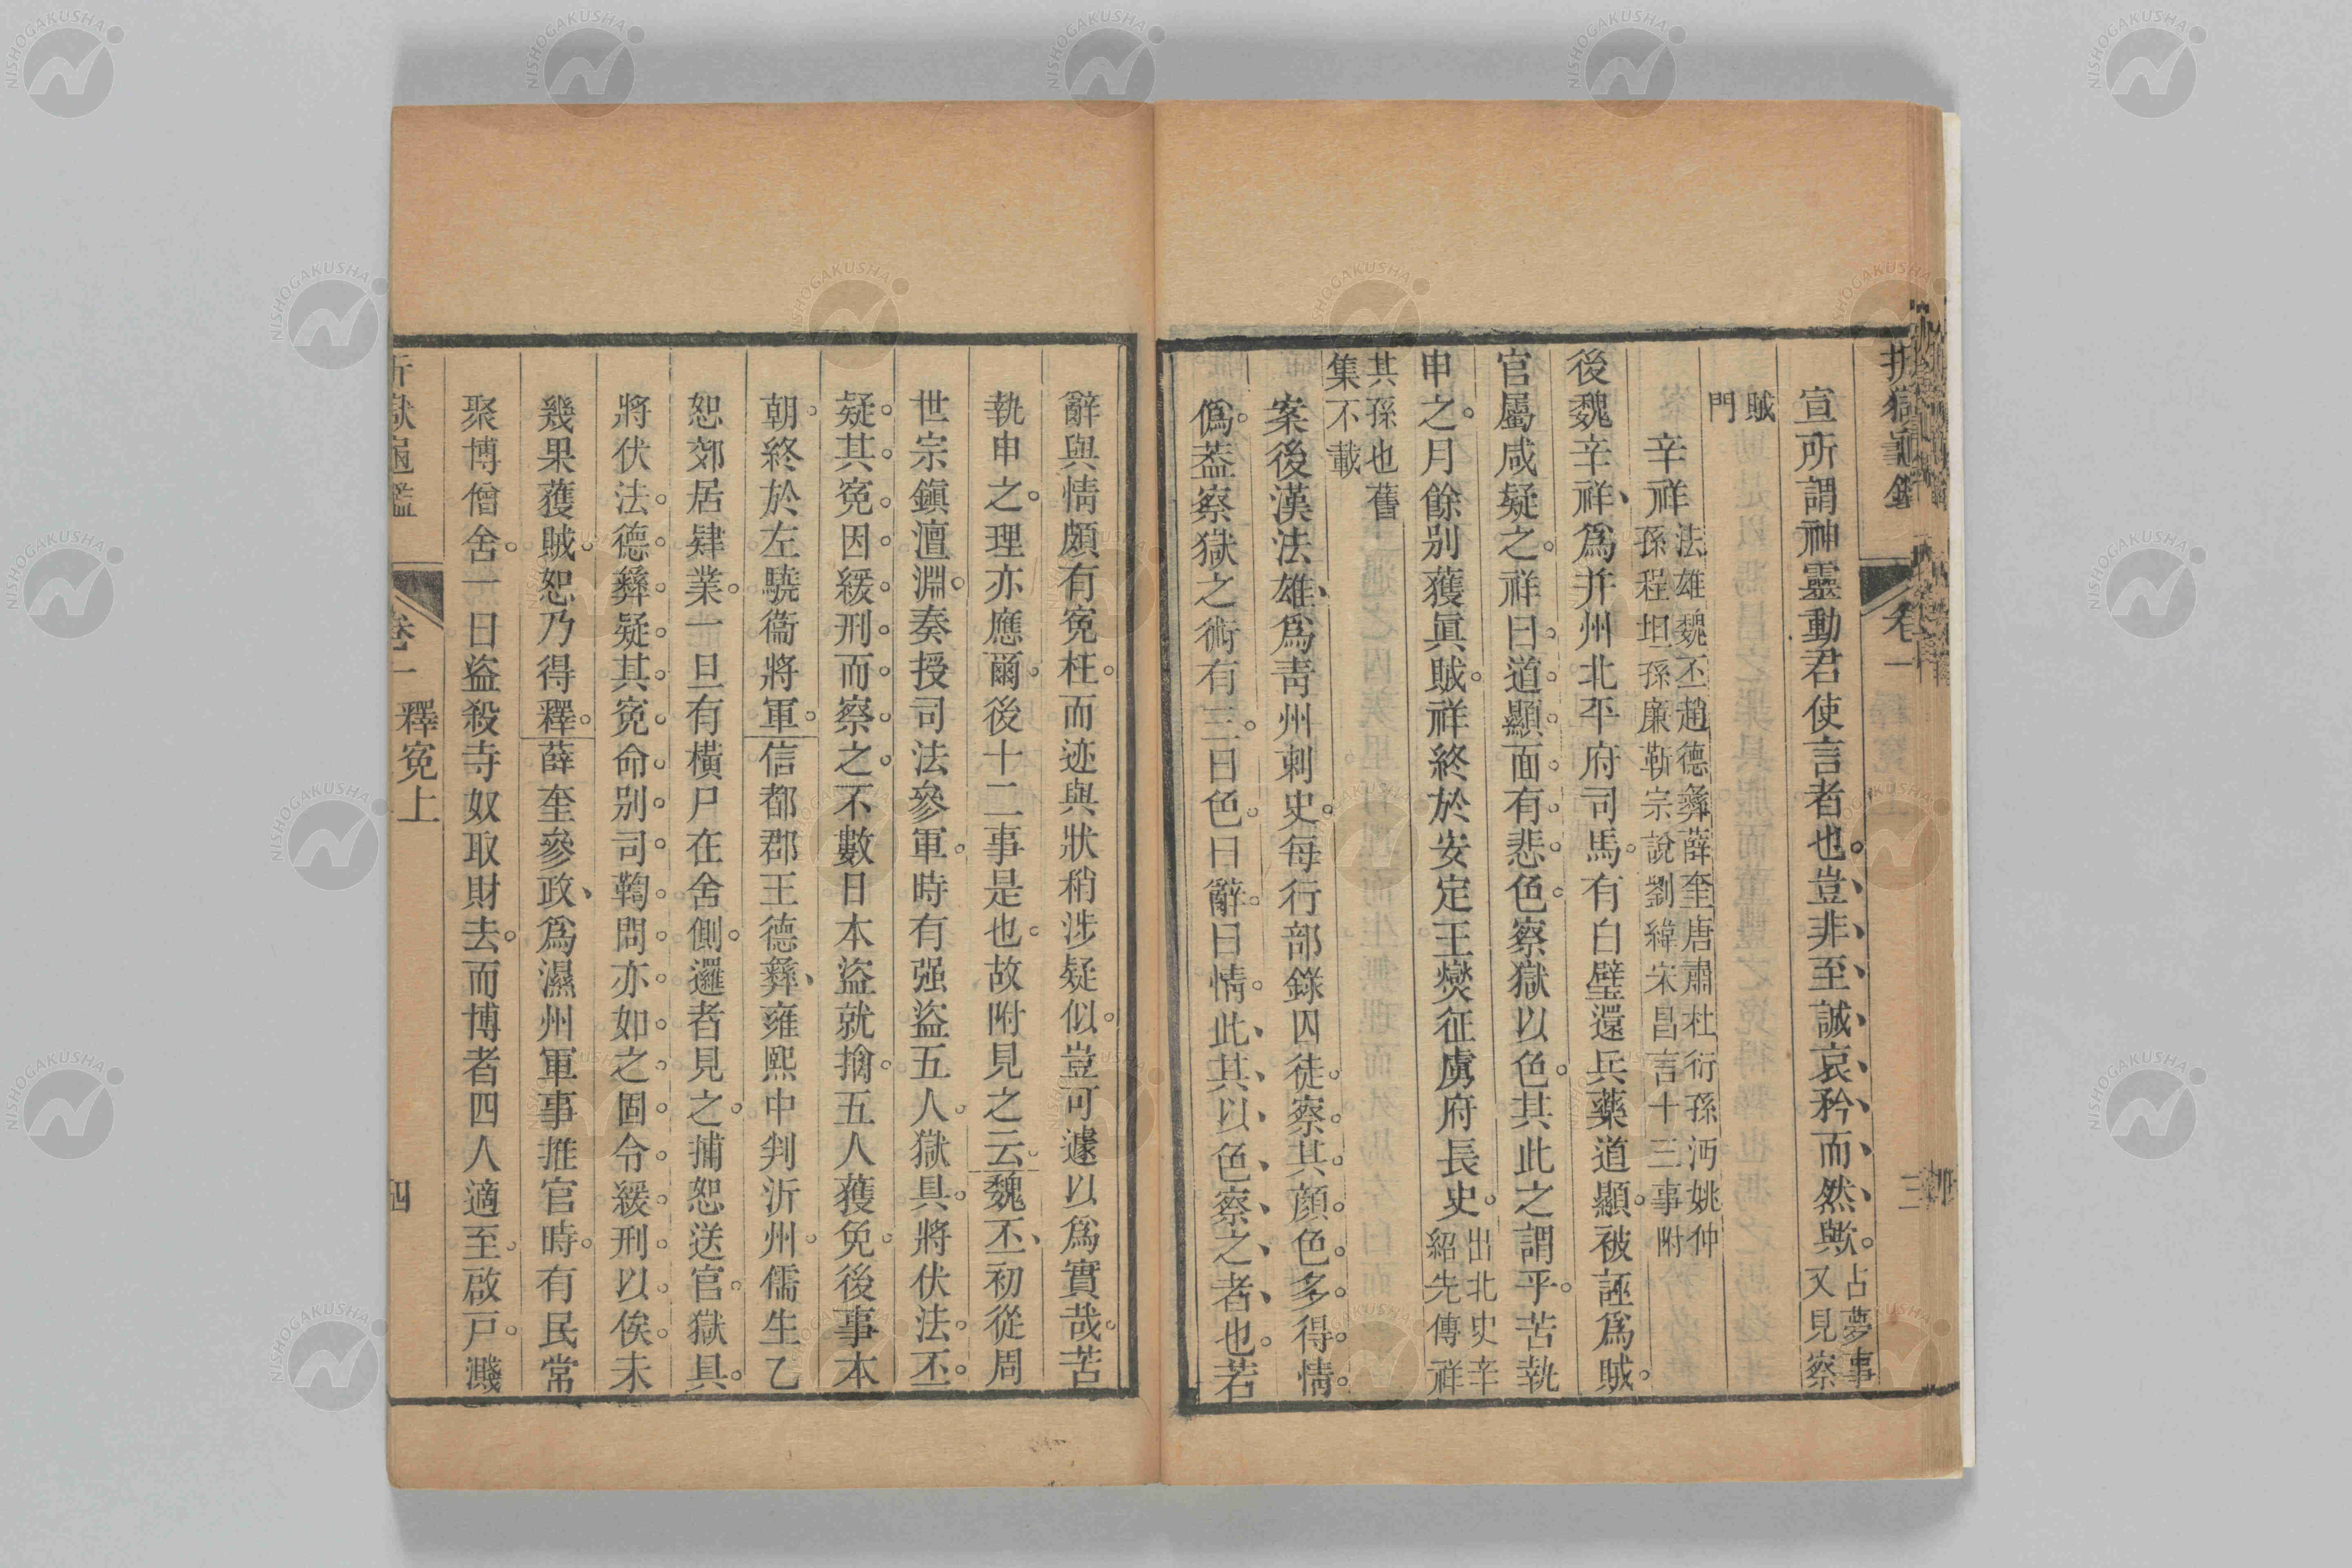 宣所謂神靈動君使言者也。豈非至誠哀矜而然歟。占夢事又見察
賊門
辛祥法雄魏丕趙德彝薛奎唐肅杜衍孫沔姚仲孫程坦孫廉靳宗說劉緯宋昌言十三事附
後魏辛祥、爲幷州北平府司馬。有白璧還兵藥道顯。被誣爲賊。
官屬咸疑之。祥曰。道顯面有悲色。察獄以色。其此之謂乎。苦執
申之。月餘別獲眞賊。祥終於安定王燮征虜府長史。出北史辛紹先傳祥
其孫也舊集不載
案後漢法雄、爲靑州刺史。每行部錄囚徒。察其顏色。多得情
僞。蓋察獄之術有三。曰色。曰辭。曰情。此其以色察之者也。若
辭與情頗有冤枉。而迹與狀稍涉疑似。豈可遽以爲實哉。苦
執申之。理亦應爾。後十二事是也。故附見之云。魏丕、初從周
世宗鎭澶淵。奏授司法參軍。時有强盜五人。獄具。將伏法。丕。
疑其冤。因緩刑而察之。不數日本盜就擒。五人獲免。後事本
朝。終於左驍衞將軍。信都郡王德彝、雍熙中判沂州。儒生乙
恕郊居肄業。一旦有橫尸在舍側。邏者見之。捕恕送官。獄具。
將伏法。德彝疑其冤。命別司鞫問。亦如之。固令緩刑以俟。未
幾果獲賊。恕乃得釋。薛奎參政、爲濕州軍事推官時。有民常
聚博僧舍。一日盜殺寺奴取財去。而博者四人適至。啟戸。濺
卷一 釋冤上
四